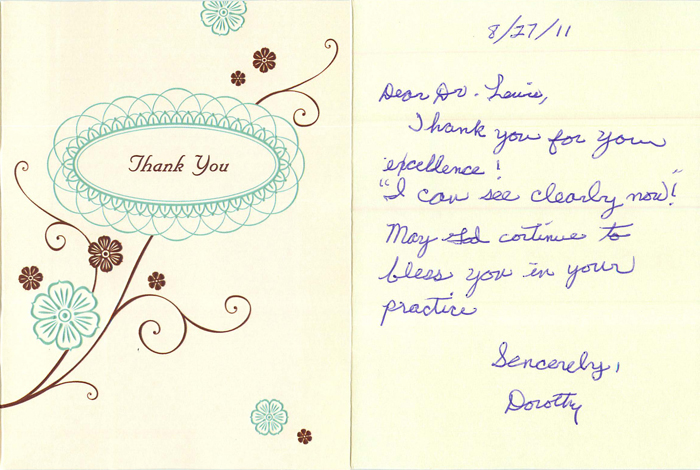 Thank You
8/27/11
Dear Dr. Lewis,
Thank you for your
excellence!
"I can see clearly now!"
May God continue to
bless you in your
practice
Sencereby,
Dorothy